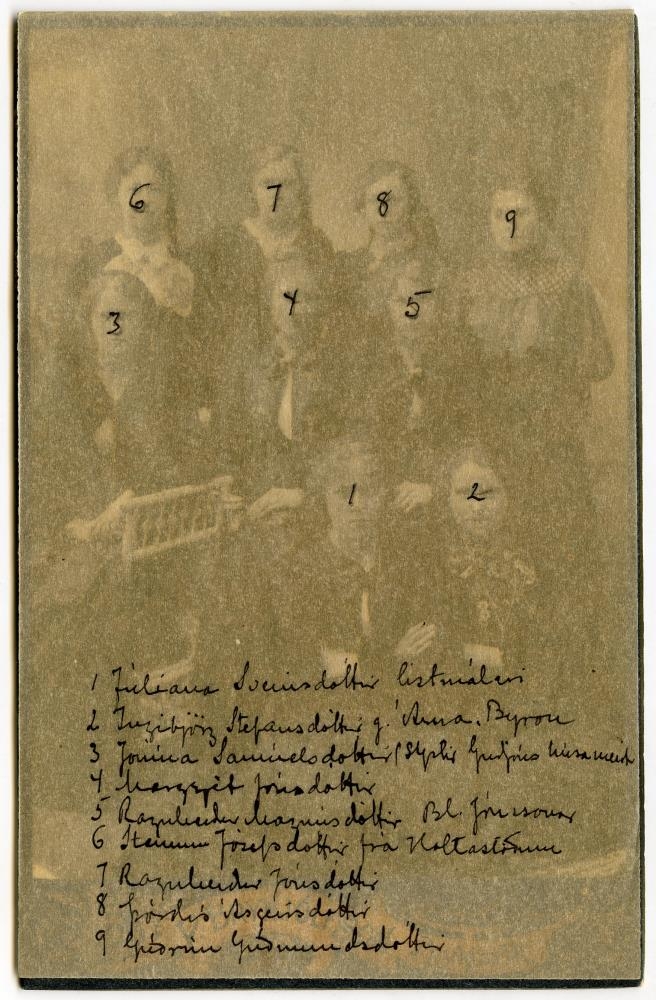 6 7 8 9
3 4 5
1 2
1 Júlíana Sveinsdóttir listmálari
2 Ingibjörg Stefansdóttir g. Árna. Byron
3 Jónína Samúelsdóttir (Stystir Guðjóns húsameist
4 Margrjét Jónsdóttir
5 Ragnheiður Magnúsdóttir Bl. Jónssonar
6 Steinunn Jósefsdóttir frá Holtastöðum
7 Ragnheiður Jónsdóttir
8 Þórdís Ásgeirsdóttir
9 Guðrún Guðmundsdóttir